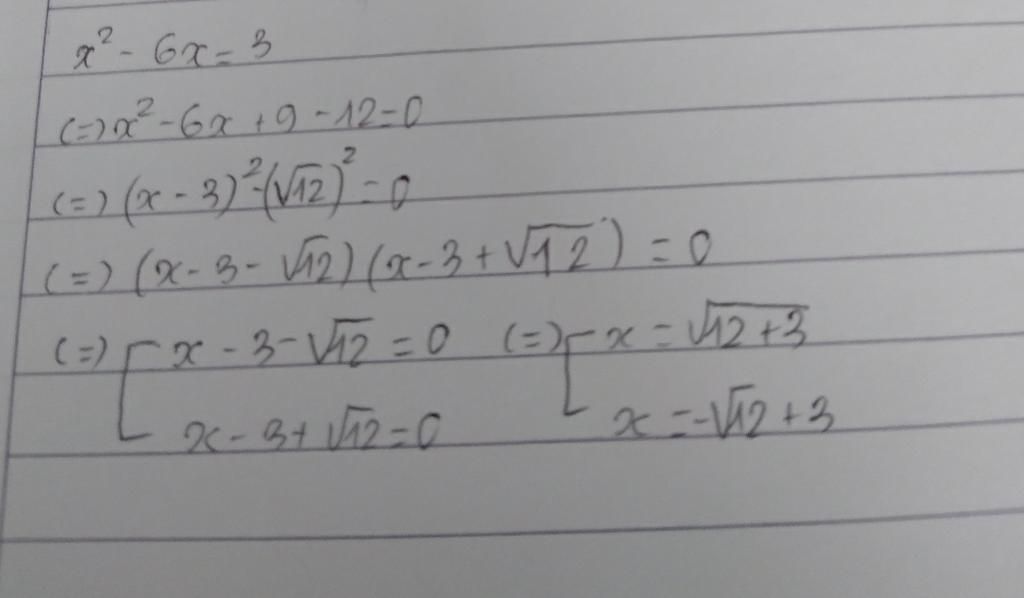 x² - 6x = 3
(=) x² - 6x + 9 - 12 = 0
(=) (x - 3)² - (√12)² = 0
(=) (x - 3 - √12)(x - 3 + √12) = 0
(=) [ x - 3 - √12 = 0 (=) [ x = √(12 + 3)
x - 3 + √12 = 0 x = -√12 + 3